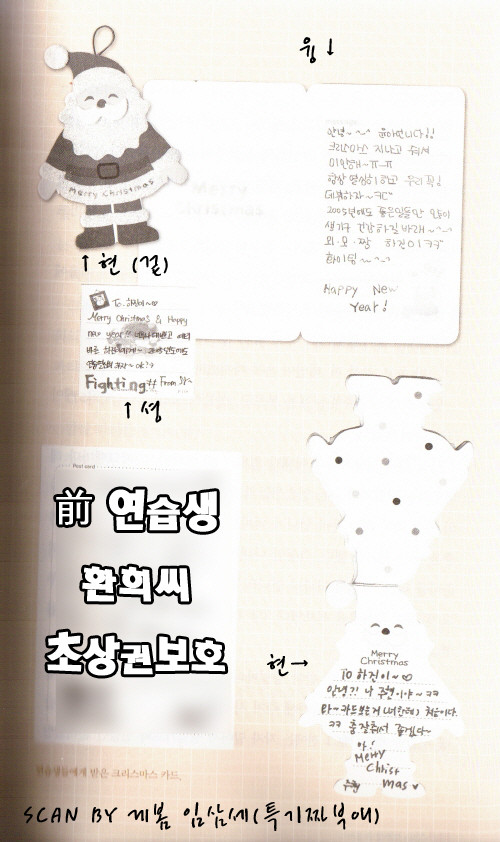 윙↓
Merry Christmas
↑ 현 (겉)
안녕~^^ 윤아언니다!!
크리스마스 지나고 줘서
미안해~ㅠ-ㅠ
항상 열심히 하고 우리 꼭!
데뷔하자~ㅋㄷ
2005년에도 좋은일들만 많이
생기구 건강하길 바래~^-^
외·모·짱 하진이 ㅋㅋ
화이팅~^-^
Happy New
Year!
To. 하진이~♡
Merry Christmas & Happy
new year!!
Fighting## From
↑ 셩
Post card
前 연습생
환희씨
초상권보호
현→
Merry
Christmas
To 하진이~♡
안녕?! 나 주현이야~ㅋㅋ
와~카드쓰는거 너한테 처음이다.
ㅋㅋ 춤 잘춰서 좋겠다~
아!
Merry
Christ
mas ♥
주현
연습생들에게 받은 크리스마스 카드.
SCAN BY 계봄 임삼세(특기짜부애)